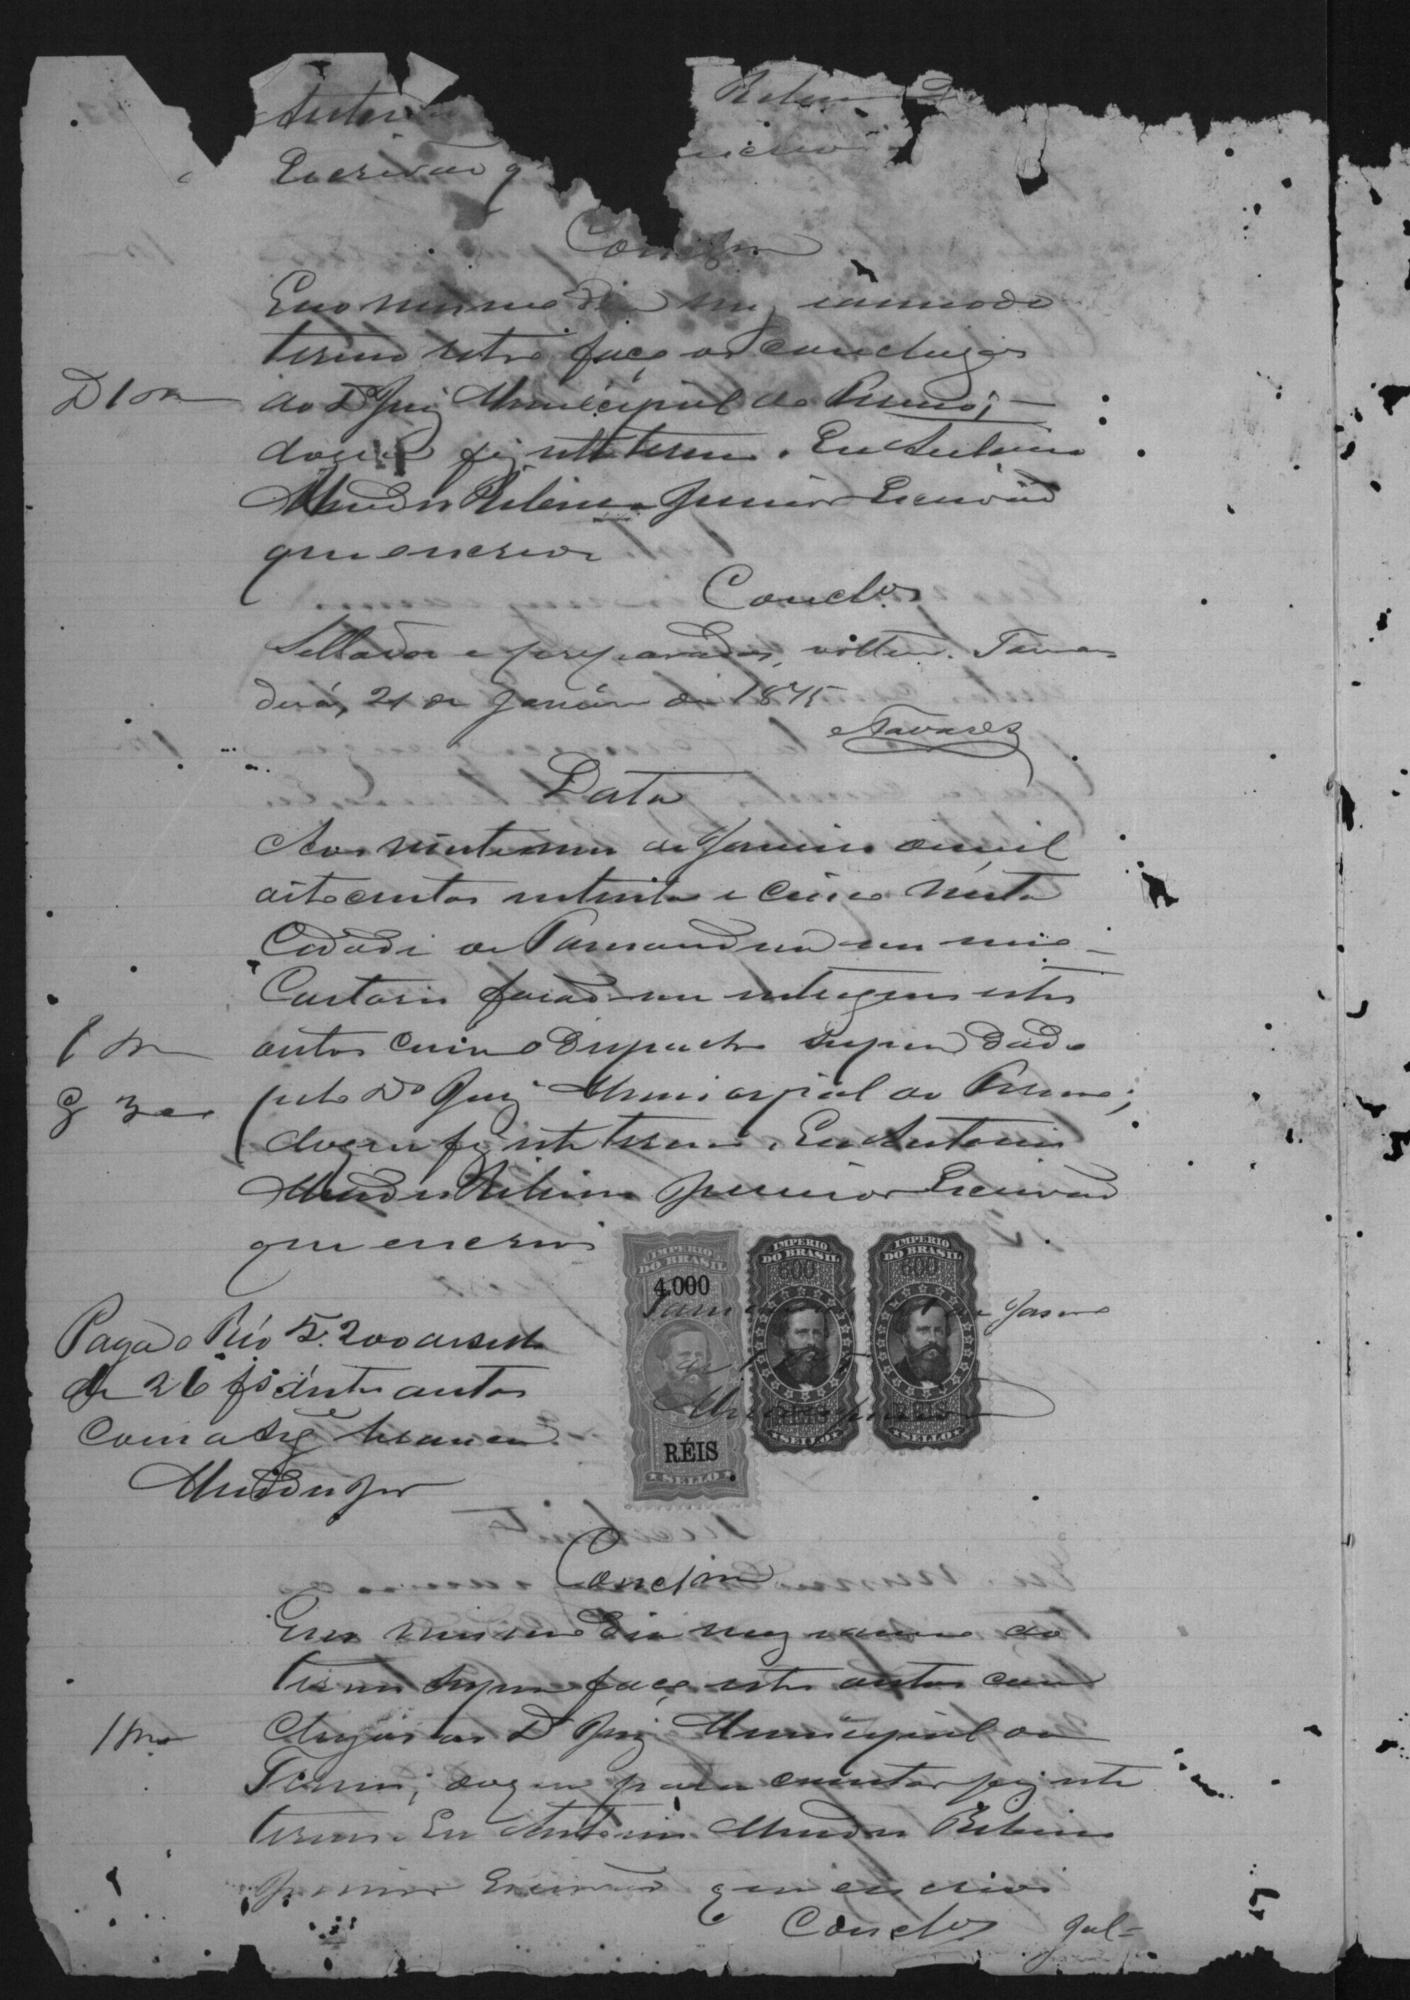 Antonio Ribeiro
Escrivão q escrevi
Conclsm
E no mesmo dia mez e anno do
termo retro faço os conclusos
D 1 ao Dr Juiz Municipal do Termo;
do que fiz este termo. Eu Antonio
Mendes Ribeiro Junior Escrivão
que escrevi
Conclos
Sellados e preparados, voltem. Taman
duá, 21 de Janeiro de 1875
Tavares
Data
Aos vinte um de Janeiro de mil
oito centos setenta e cinco nésta
Cidade de Tamanduá em meo
Cartorio forão me entregues estes
autos com o Despacho supra dado
pelo Dr Juiz Municipal do Termo;
do que fiz este termo. Eu Antonio
Mendes Ribeiro Junior Escrivão
que escrevi
IMPERIO DO BRASIL 4.000 RÉIS SELLO
IMPERIO DO BRASIL 600 RÉIS SELLO
IMPERIO DO BRASIL 600 RÉIS SELLO
Pagão Rs 5.200 de sello
de 26 fs d'estes autos
com a branca.
Mendes Jor
Conclsm
E no mesmo dia mez e anno do
termo supra faço estes autos con
clusos ao Dr Juiz Municipal do
Termo; do que para constar fiz este
termo. Eu Antonio Mendes Ribeiro
Junior Escrivão que escrevi
Conclos Jul-